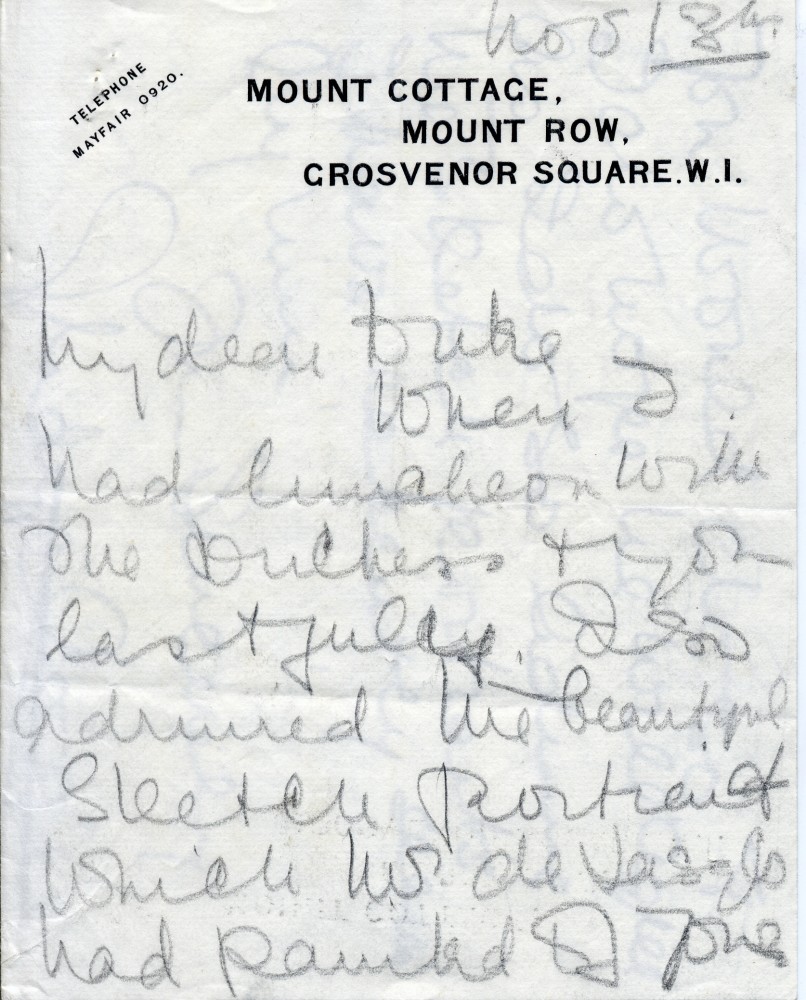 Nov 13th
TELEPHONE
MAYFAIR 0920.
MOUNT COTTAGE,
MOUNT ROW,
GROSVENOR SQUARE.W.I.
My dear Duke
When I
had luncheon with
the Duchess & you
last July. I so
admired the beautiful
Sketch portrait
which Mr de Laszlo
had painted of